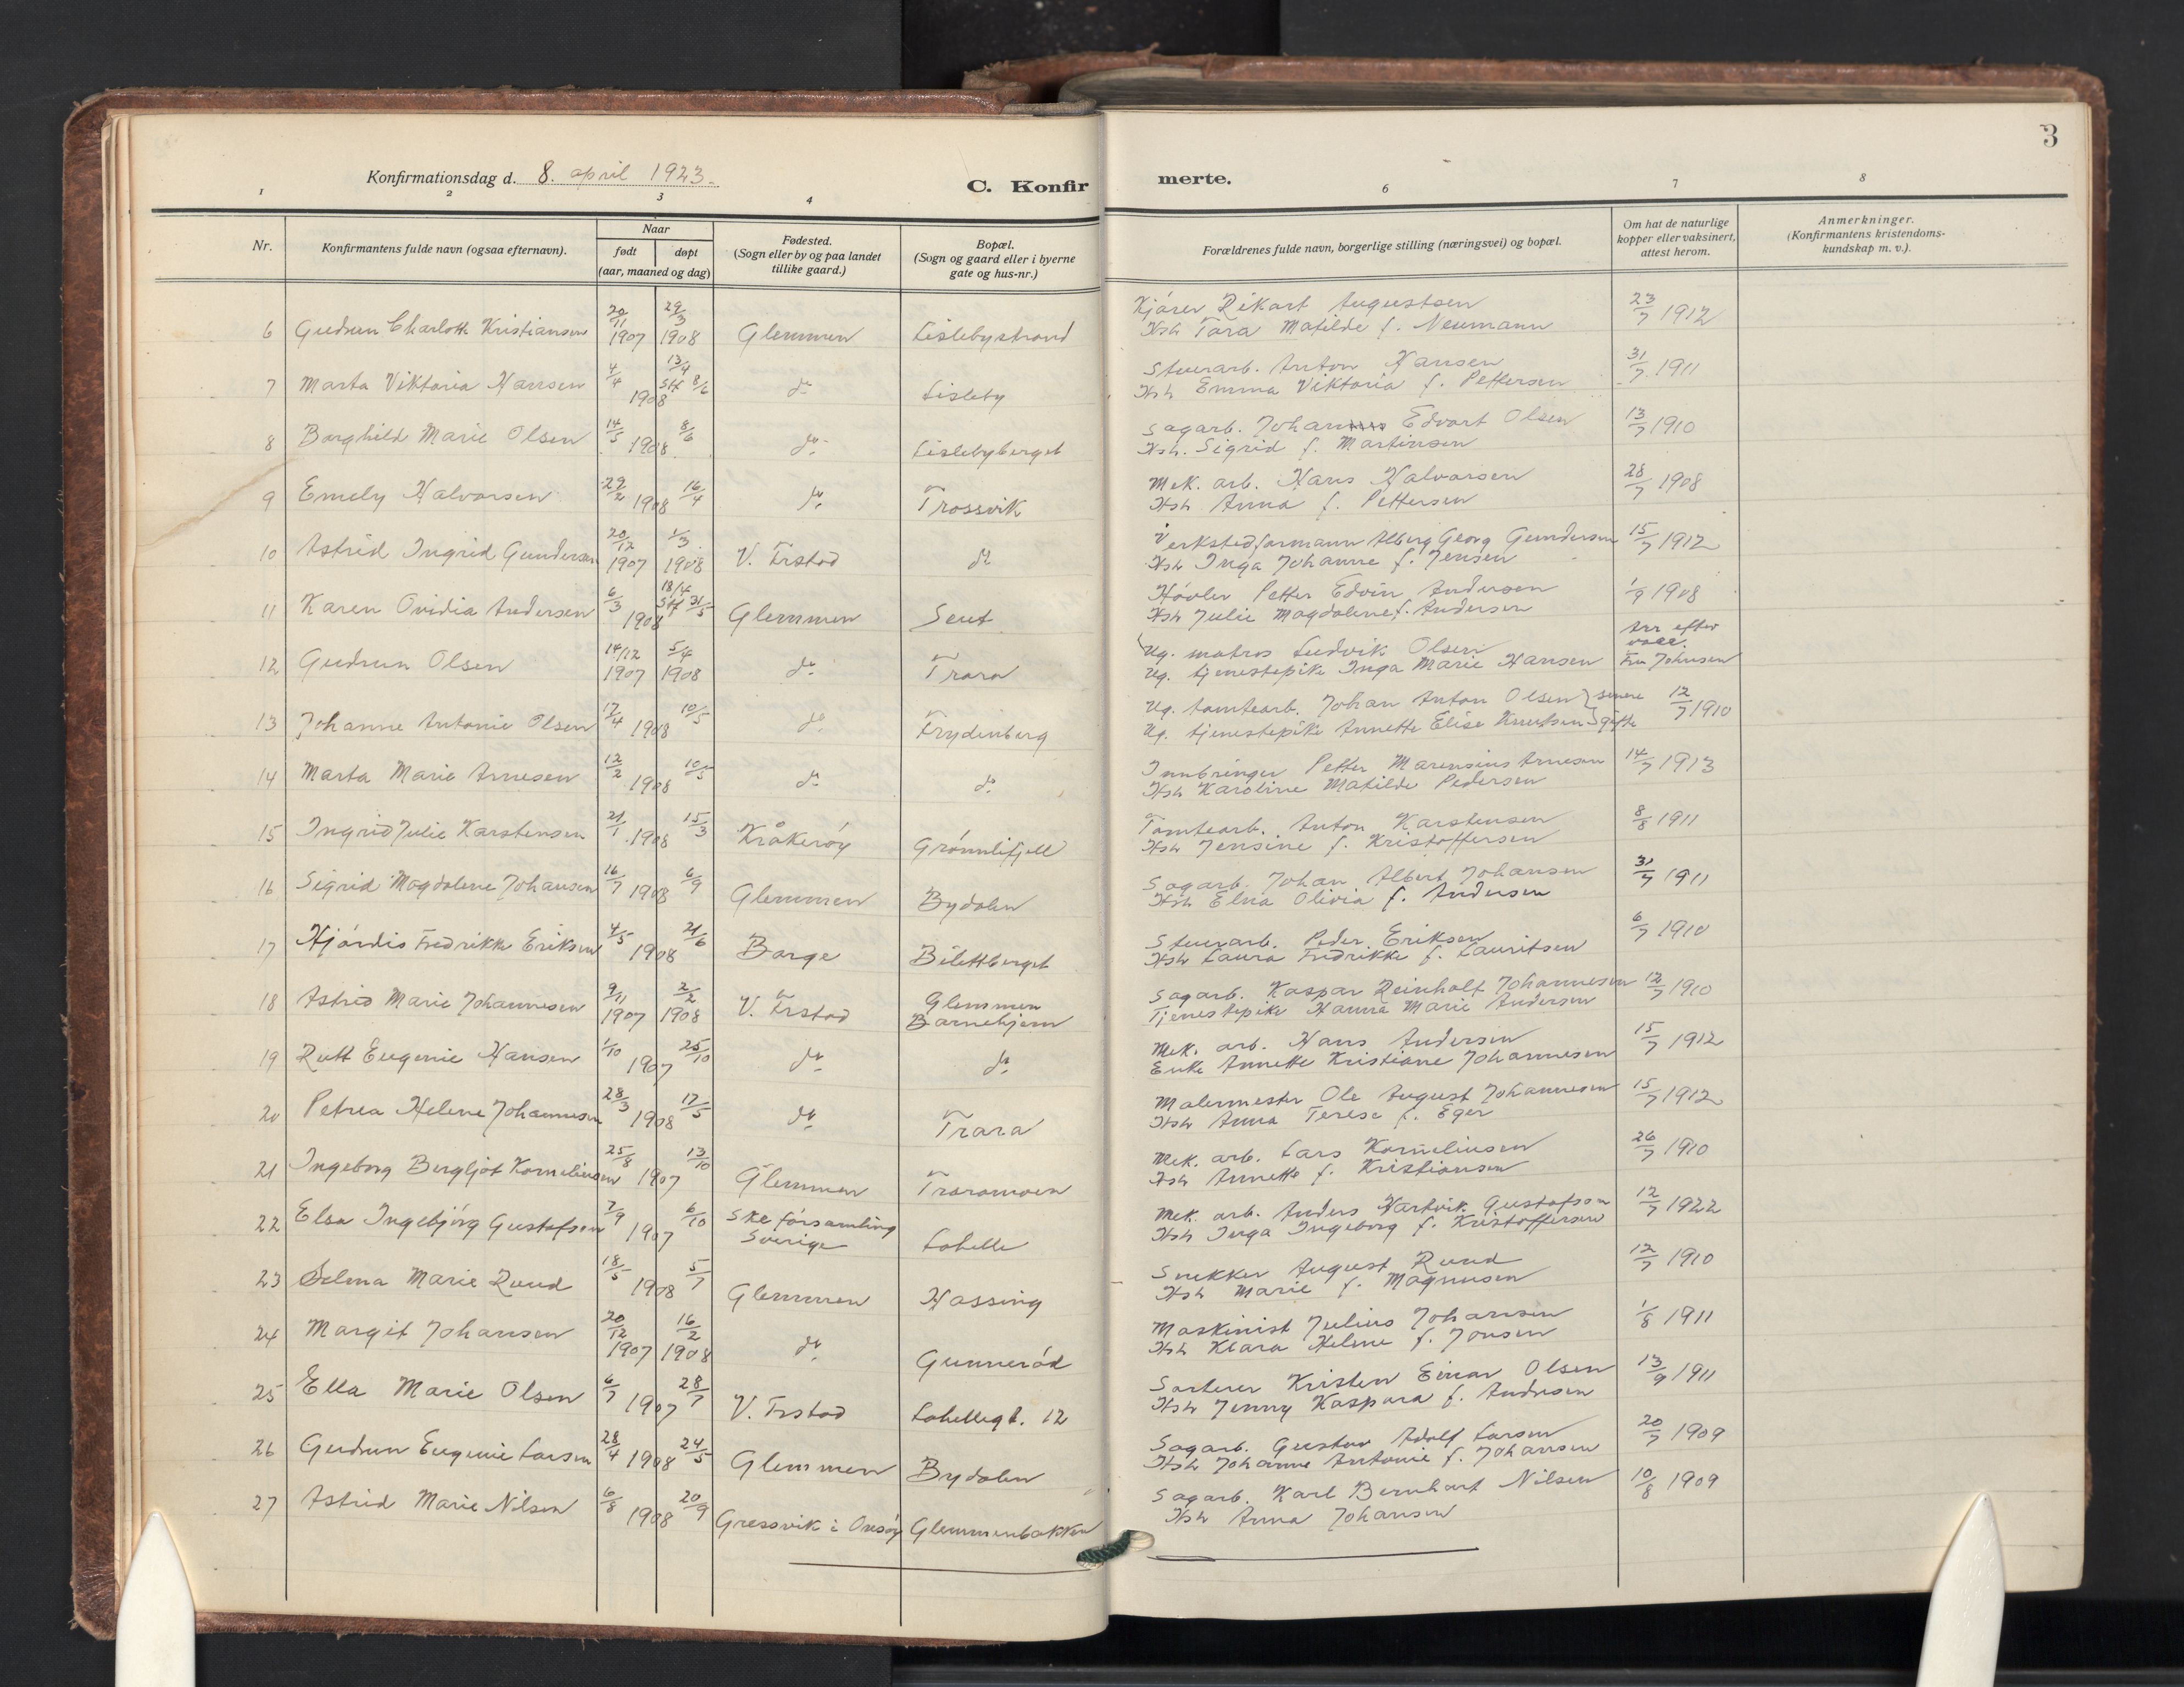 3
Konfirmationsdag d. 8. april 1923.
C. Konfirmerte.
1 2 3 4 6 7 8
Nr.
Konfirmantens fulde navn (ogsaa efternavn).
Naar
født døpt
(aar, maaned og dag)
Fødested.
(Sogn eller by og paa landet
tillike gaard.)
Bopæl.
(Sogn og gaard eller i byerne
gate og hus-nr.)
Forældrenes fulde navn, borgerlige stilling (næringsvei) og bopæl.
Om hat de naturlige
kopper eller vaksinert,
attest herom.
Anmerkninger.
(Konfirmantens kristendoms-
kundskap m. v.).
6 Gudrun Charlotte Kristiansen 20/11 1907 29/3 1908 Glemmen Lislebystrand Kjører Rikart Augustsen 23/7 1912
Hsh Tara Matilde f. Neumann
7 Marta Viktoria Hansen 4/4 1908 13/4 Stf 8/6 do Lisleby Stuerarb. Anton Hansen 31/7 1911
Hsh Emma Viktoria f. Pettersen
8 Borghild Marie Olsen 14/5 1908 8/6 do Lislebyberget Sagarb. Johan Edvart Olsen 13/7 1910
Hsh. Sigrid f. Martinsen
9 Emely Halvorsen 29/2 1908 16/4 do Trossvik Mek. arb. Hans Halvorsen 28/7 1908
Hsh Anna f. Pettersen
10 Astrid Ingrid Gundersen 20/12 1907 1/3 1908 V. Frstad do Verkstedformann Alberg Georg Gundersen 15/7 1912
Hsh Inga Johanne f. Jensen
11 Karen Ovidia Andersen 6/3 1908 18/4 Stf 31/5 Glemmen Seut Høvler Petter Edvin Andersen 1/9 1908
Hsh Julie Magdalene f. Andersen
12 Gudrun Olsen 14/12 1907 5/4 1908 do Trara Ug. matros Ludvik Olsen Arr efter vacc.
Ug. tjenestepike Inga Marie Hansen Fru Johnsen
13 Johanne Antonie Olsen 17/4 1908 10/5 do Frydenberg Ug. tomtearb. Johan Anton Olsen } senere 12/7 1910
Ug. tjenestepike Annette Elise Knutsen } gifte
14 Marta Marie Arnesen 12/2 1908 10/5 do do Innbringer Petter Marensius Arnesen 14/7 1913
Hsh Karoline Matilde Pedersen
15 Ingrid Julie Karstensen 21/1 1908 15/3 Kråkerøy Grønnlifjell Tomtearb. Anton Karstensen 8/8 1911
Hsh Jensine f. Kristoffersen
16 Sigrid Magdalene Johansen 16/7 1908 6/9 Glemmen Bydalen Sagarb. Johan Albert Johansen 31/7 1911
Hsh Elna Olivia f. Andersen
17 Hjørdis Fredrikke Eriksen 4/5 1908 21/6 Borge Bilettberget Stuerarb. Peder Eriksen 6/7 1910
Hsh Laura Fredrikke f. Lauritsen
18 Astrid Marie Johannesen 9/11 1907 2/2 1908 V. Frstad Glemmen Barnehjem Sagarb. Kaspar Reinholt Johannesen 12/7 1910
Tjenestepike Hanna Marie Andersen
19 Rutt Eugenie Hansen 1/10 1907 25/10 do do Mek. arb. Hans Andersen 15/7 1912
Enke Annette Kristiane Johannesen
20 Petrea Helene Johannesen 28/3 1908 17/5 do Trara Malermester Ole August Johannesen 15/7 1912
Hsh Anna Terese f. Eger
21 Ingeborg Bergljot Korneliusen 25/8 1907 13/10 Glemmen Traramoen Mek. arb. Lars Korneliusen 26/7 1910
Hsh Annette f. Kristiansen
22 Elsa Ingebjørg Gustafson 7/9 1907 6/10 Ske församling Sverige Lahelle Mek. arb. Anders Hartvik Gustafson 12/7 1922
Hsh Inga Ingeborg f. Kristoffersen
23 Selma Marie Ruud 18/5 1908 5/7 Glemmen Hassing Snekker August Ruud 12/7 1910
Hsh Marie f. Magnusen
24 Margit Johansen 20/12 1907 16/2 1908 do Gunnerød Maskinist Julius Johansen 1/8 1911
Hsh Klara Helene f. Jonsen
25 Ella Marie Olsen 6/7 1907 28/7 V. Frstad Lahellegt. 12 Sorterer Kristen Einar Olsen 13/9 1911
Hsh Jenny Kaspara f. Andresen
26 Gudrun Eugenie Larsen 28/4 1908 24/5 Glemmen Bydalen Sagarb. Gustav Adolf Larsen 20/7 1909
Hsh Johanne Antonie f. Johansen
27 Astrid Marie Nilsen 6/8 1908 20/9 Gressvik i Onsøy Glemmenbakken Sagarb. Karl Bernhart Nilsen 10/8 1909
Hsh Anna Johansen